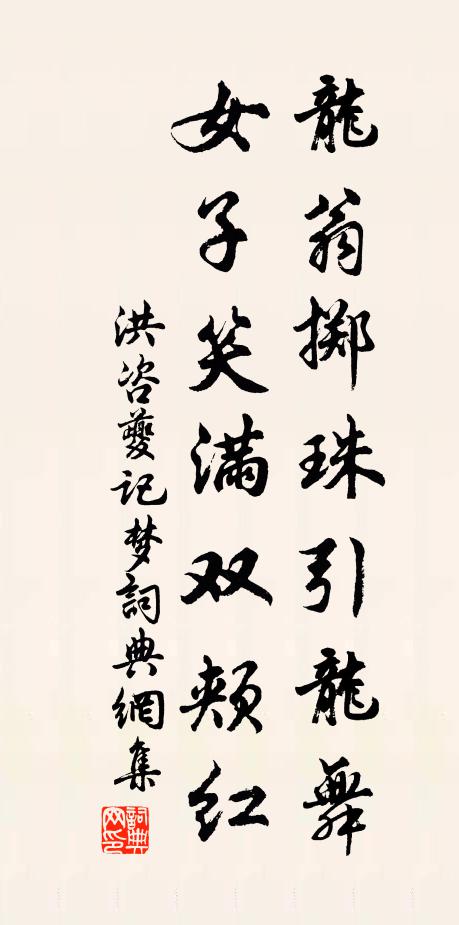 龍翁擲珠引龍舞
女子笑滿双頰红
洪咨夔记梦詞典網集
詞典网印